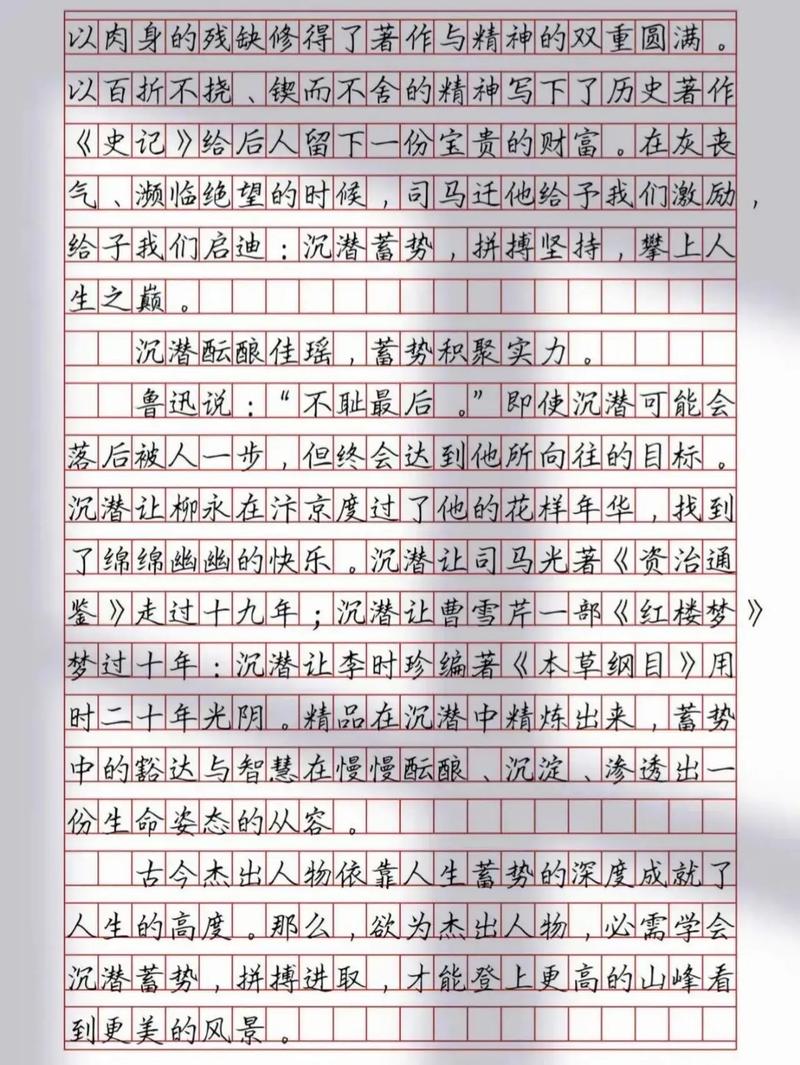 以肉身的残缺修得了著作与精神的双重圆满。
以百折不挠、锲而不舍的精神写下了历史著作
《史记》给后人留下一份宝贵的财富。在灰丧
气、濒临绝望的时候，司马迁他给予我们激励，
给子我们启迪：沉潜蓄势，拼搏坚持，攀上人
生之巅。
沉潜酝酿佳瑶，蓄势积聚实力。
鲁迅说：“不耻最后。”即使沉潜可能会
落后被人一步，但终会达到他所向往的目标。
沉潜让柳永在汴京度过了他的花样年华，找到
了绵绵幽幽的快乐。沉潜让司马光著《资治通
鉴》走过十九年；沉潜让曹雪芹一部《红楼梦》
梦过十年：沉潜让李时珍编著《本草纲目》用
时二十年光阴。精品在沉潜中精炼出来，蓄势
中的豁达与智慧在慢慢酝酿、沉淀、渗透出一
份生命姿态的从容。
古今杰出人物依靠人生蓄势的深度成就了
人生的高度。那么，欲为杰出人物，必需学会
沉潜蓄势，拼搏进取，才能登上更高的山峰看
到更美的风景。